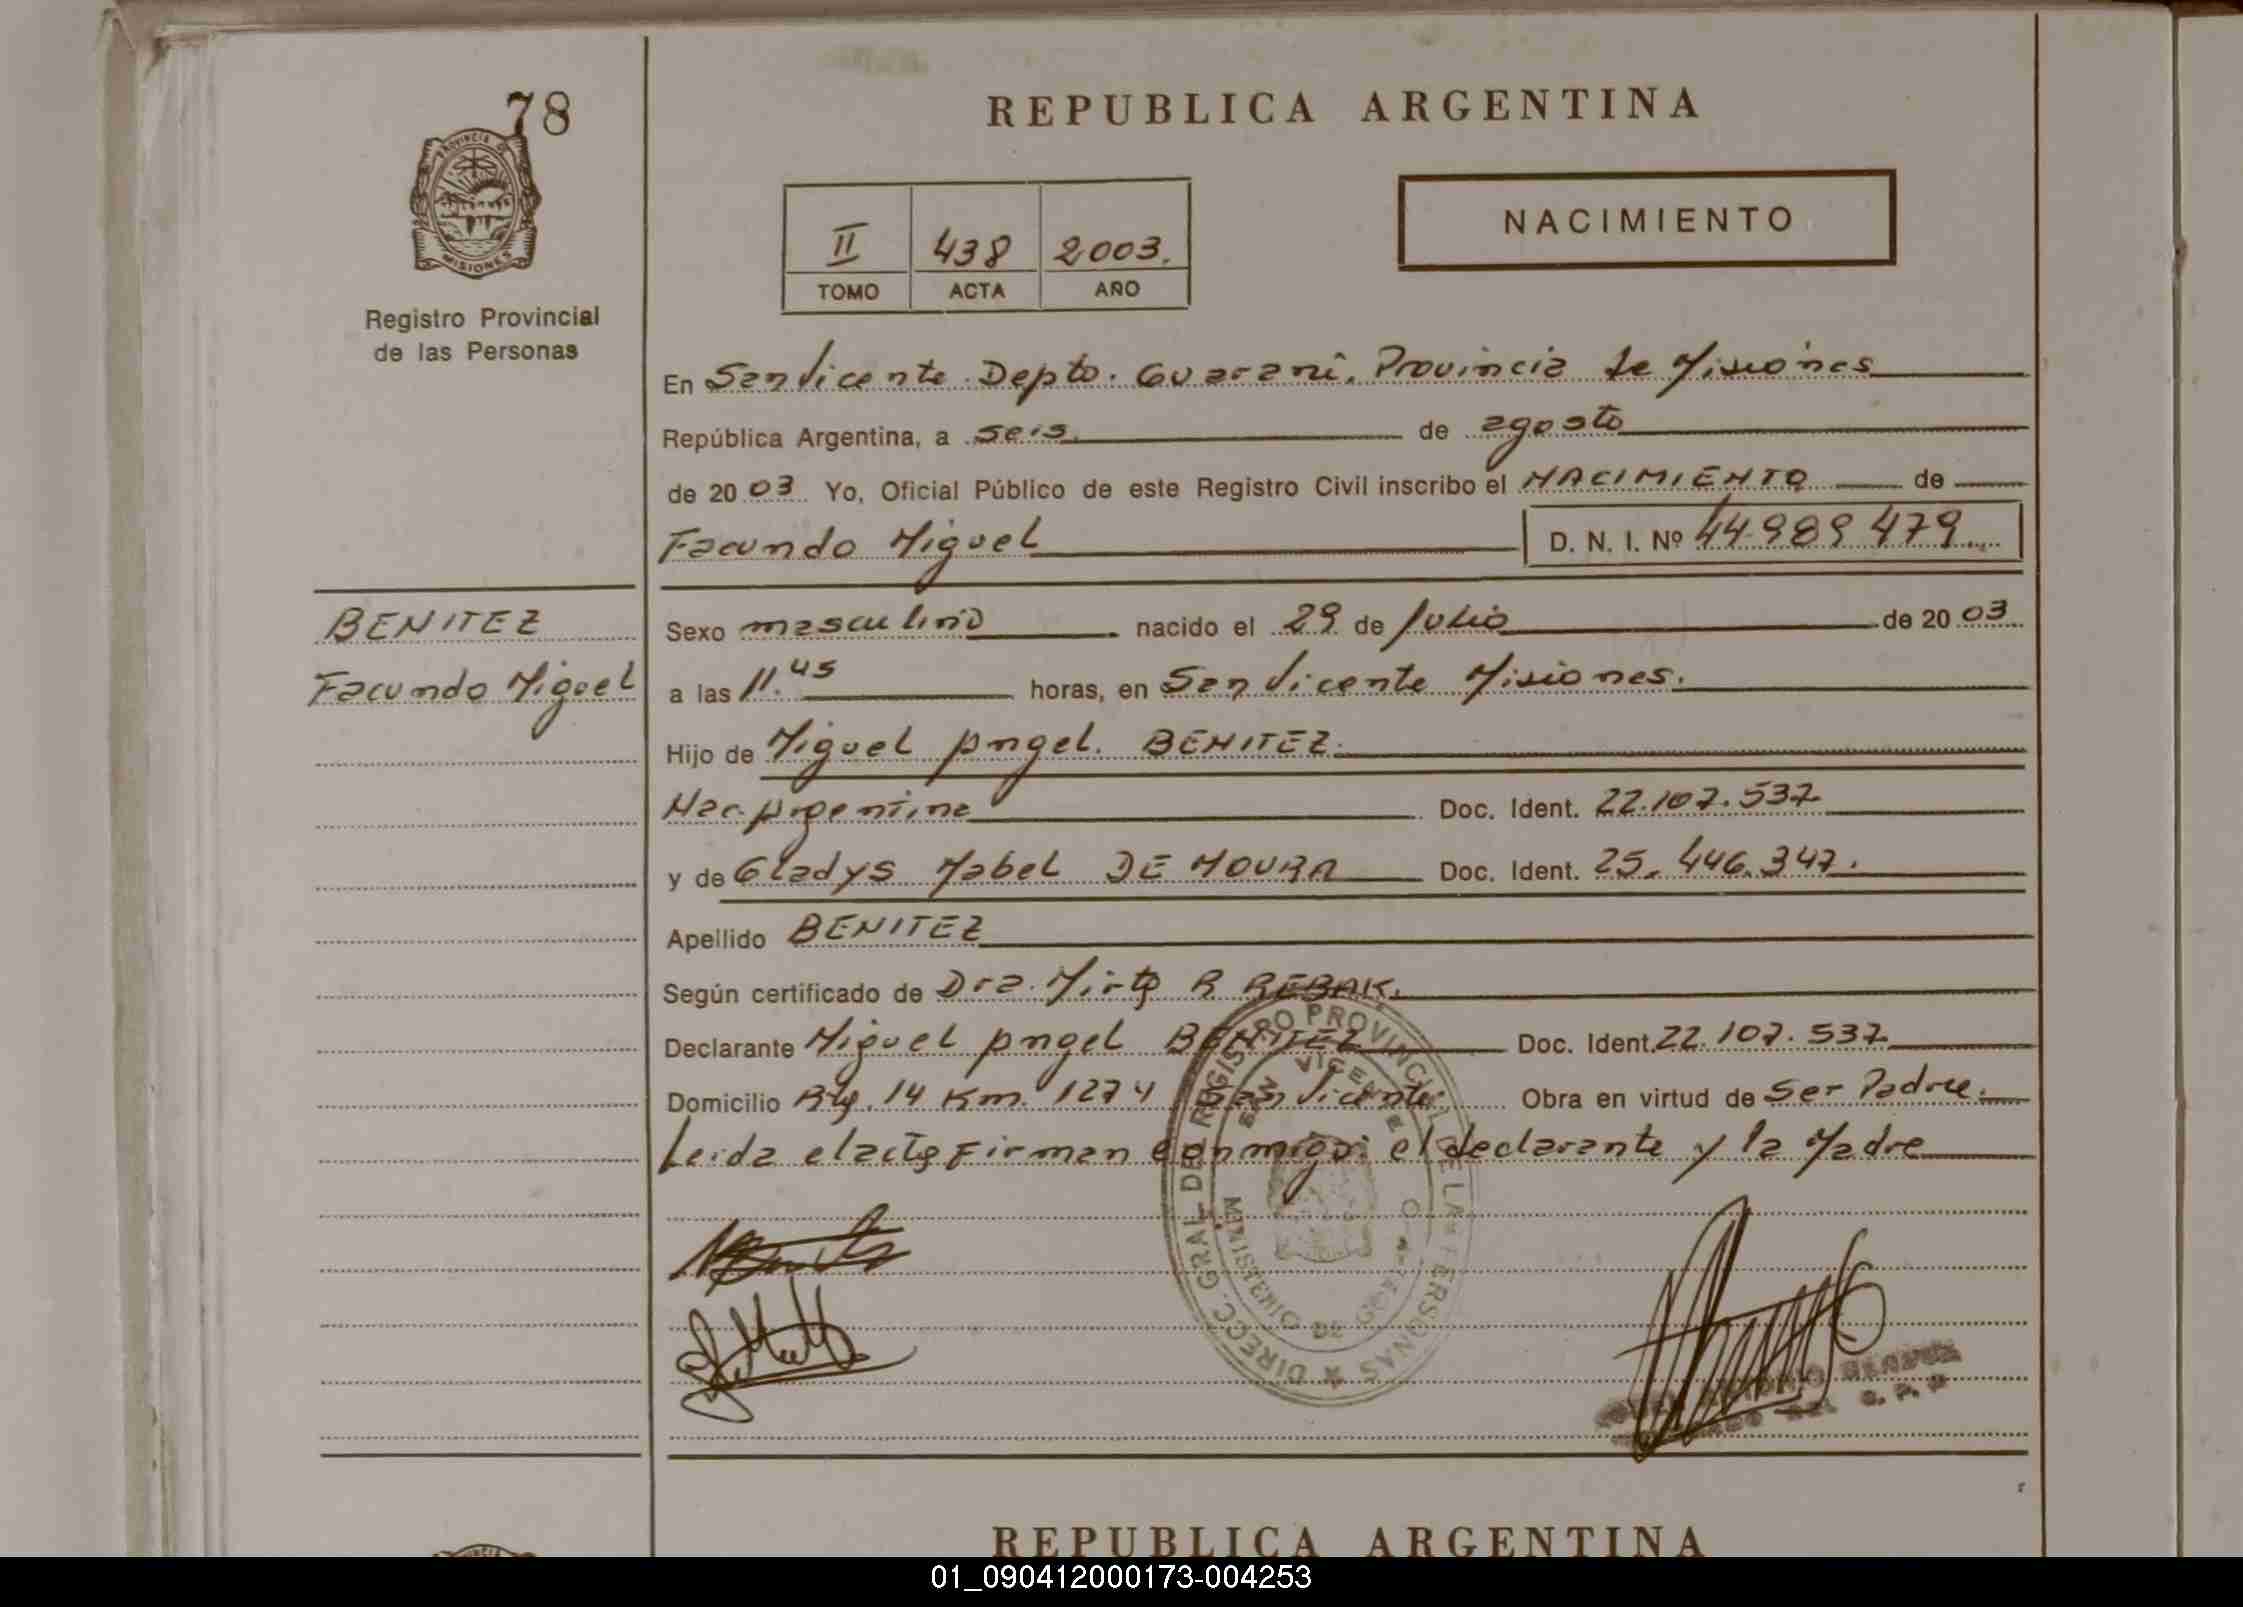 78
PROVINCIA DE
MISIONES
Registro Provincial
de las Personas
REPUBLICA ARGENTINA
II 438 2003.
TOMO ACTA AÑO
NACIMIENTO
En San Vicente Depto. Guaraní, Provincia de Misiones
República Argentina, a seis. de agosto
de 2003 Yo, Oficial Público de este Registro Civil inscribo el NACIMIENTO de
Facundo Miguel D. N. I. Nº 44.989.479
BENITEZ
Facundo Miguel
Sexo masculino nacido el 29 de Julio de 2003
a las 11.45 horas, en San Vicente Misiones.
Hijo de Miguel Angel. BENITEZ.
Nac. Argentina Doc. Ident. 22.107.537
y de Gladys Mabel DE MOURA Doc. Ident. 25.446.347.
Apellido BENITEZ
Según certificado de Dra. Mirta R REBAK.
Declarante Miguel Angel BENITEZ Doc. Ident. 22.107.537
Domicilio Rta. 14 Km. 1274 San Vicente. Obra en virtud de Ser Padre.
Leida el acta Firman conmigo: el declarante y la Madre
DIRECC. GRAL. DEL REGISTRO PROVINCIAL DE LAS PERSONAS
SAN VICENTE
MINISTERIO DE GOBIERNO
REPUBLICA ARGENTINA
01_090412000173-004253